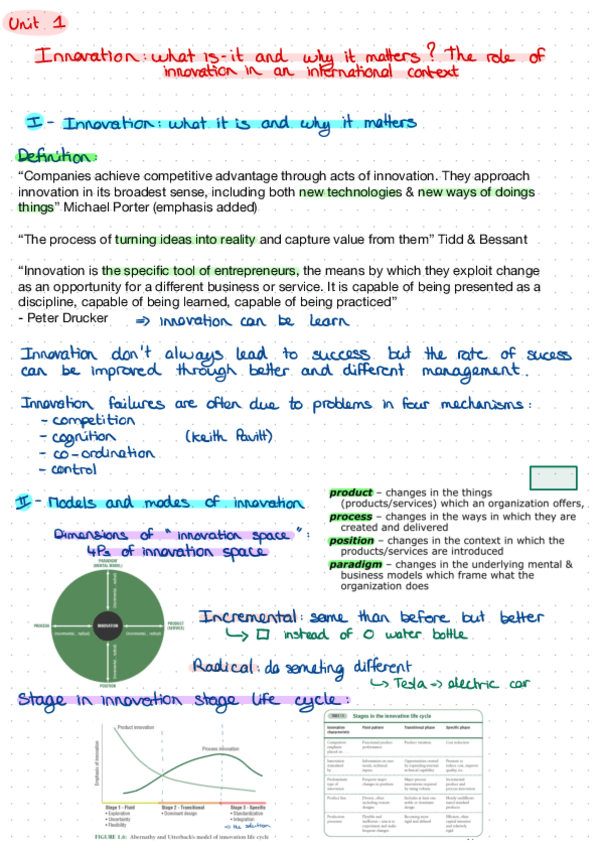 Unit 1
Innovation: what is-it and why it matters? The role of
innovation in an international context
I - Innovation: what it is and why it matters
Definition:
“Companies achieve competitive advantage through acts of innovation. They approach
innovation in its broadest sense, including both new technologies & new ways of doings
things” Michael Porter (emphasis added)
“The process of turning ideas into reality and capture value from them” Tidd & Bessant
“Innovation is the specific tool of entrepreneurs, the means by which they exploit change
as an opportunity for a different business or service. It is capable of being presented as a
discipline, capable of being learned, capable of being practiced”
- Peter Drucker => innovation can be learn
Innovation don't always lead to success but the rate of sucess
can be improved through better and different management.
Innovation failures are often due to problems in four mechanisms:
- competition
- cognition (Keith Pavitt)
- co-ordination
- control
II - Models and modes of innovation
Dimensions of "innovation space":
4Ps of innovation space
product – changes in the things
(products/services) which an organization offers,
process – changes in the ways in which they are
created and delivered
position – changes in the context in which the
products/services are introduced
paradigm – changes in the underlying mental &
business models which frame what the
organization does
PARADIGM
(MENTAL MODEL)
PROCESS
INNOVATION
PRODUCT
(SERVICE)
POSITION
Incremental: same than before but better
↳ □ instead of O water bottle
Radical: do someting different
↳ Tesla => electric car
Stage in innovation stage life cycle:
Product innovation
Process innovation
Stage 1 - Fluid
• Exploration
• Uncertainty
• Flexibility
Stage 2 - Transitional
• Dominant design
Stage 3 - Specific
• Standardization
• Integration
FIGURE 1.6: Abernathy and Utterback's model of innovation life cycle
Stages in the innovation life cycle
Innovation characteristic Fluid pattern Transitional phase Specific phase